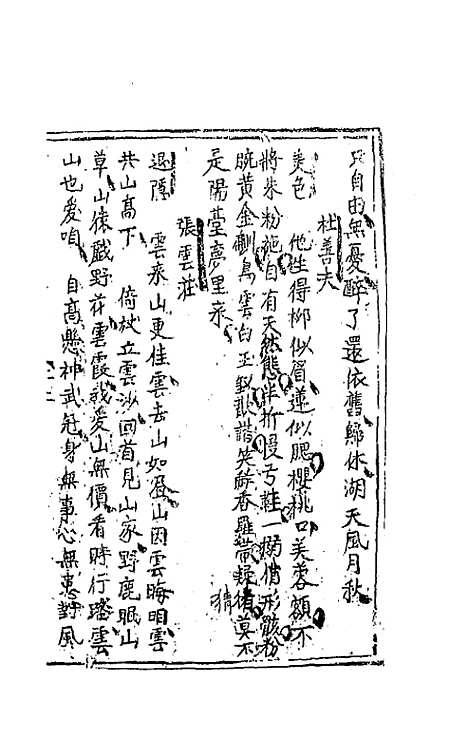 自由無憂醉了還依舊歸休湖天風月秋
杜善夫
美色　他生得柳似眉蓮似腮櫻桃口芙蓉額不
將朱粉施自有天然態半折慢弓鞋一搦俏形骸粉
腕黃金釧烏雲白玉釵歡諧笑解香羅帶疑猜莫不
是陽臺夢里來
張雲莊
退隱　雲來山更佳雲去山如畫山因雲晦明雲
共山高下　倚杖立雲沙回首見山家野鹿眠山
草山猿戲野花雲霞我愛山無價看時行踏雲
山也愛咱　自高懸神武冠身無事心無患對風